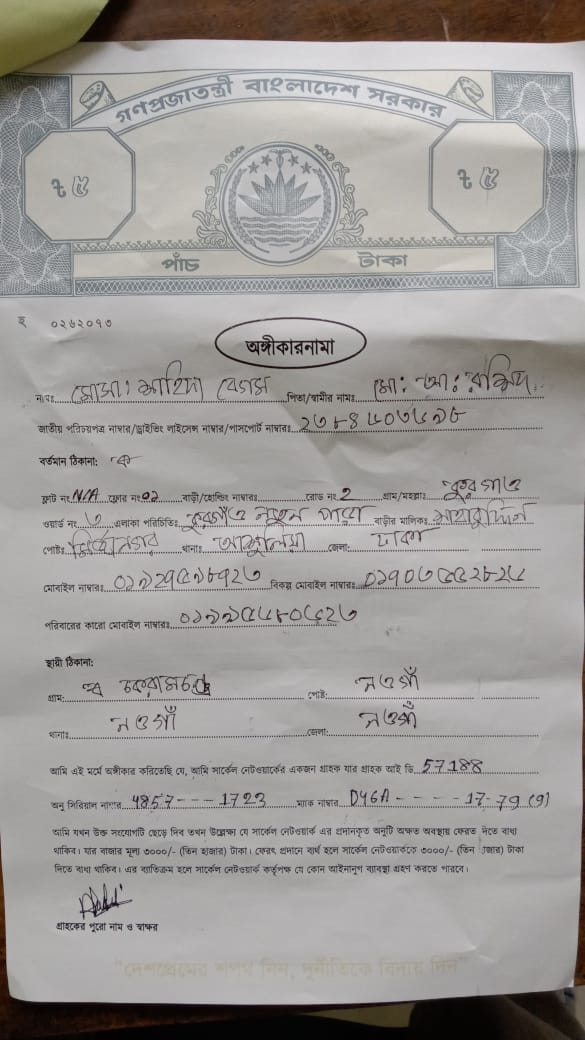 গণপ্রজাতন্ত্রী বাংলাদেশ সরকার
৳ ৫ ৳ ৫
পাঁচ টাকা
০২৬২০৭৩
অঙ্গীকারনামা
নামঃ মোসাঃ জাহিদা বেগম পিতা/স্বামীর নামঃ মো: আ: রশিদ
জাতীয় পরিচয়পত্র নাম্বার/ড্রাইভিং লাইসেন্স নাম্বার/পাসপোর্ট নাম্বারঃ
বর্তমান ঠিকানা:
ফ্লাট নং N/A ফ্লোর নং 02 বাড়ী/হোল্ডিং নাম্বারঃ রোড নং 2 গ্রাম/মহল্লাঃ কুরগাও
ওয়ার্ড নং ৩ এলাকা পরিচিতিঃ কুরগাঁও নতুন পাড়া বাড়ীর মালিকঃ
পোষ্টঃ মির্জানগর থানাঃ আশুলিয়া জেলা: ঢাকা
মোবাইল নাম্বারঃ বিকল্প মোবাইল নাম্বারঃ
পরিবারের কারো মোবাইল নাম্বারঃ
স্থায়ী ঠিকানা:
গ্রাম: পোষ্ট: নওগাঁ
থানাঃ নওগাঁ জেলা: নওগাঁ
আমি এই মর্মে অঙ্গীকার করিতেছি যে, আমি সার্কেল নেটওয়ার্কের একজন গ্রাহক যার গ্রাহক আই ডি 57188
অনু সিরিয়াল নাম্বার 4857---1723 ম্যাক নাম্বার D46A----17-79 (9)
আমি যখন উক্ত সংযোগটি ছেড়ে দিব তখন উল্লেক্ষ্য যে সার্কেল নেটওয়ার্ক এর প্রদানকৃত অনুটি অক্ষত অবস্থায় ফেরত দিতে বাধ্য
থাকিব। যার বাজার মূল্য ৩০০০/- (তিন হাজার) টাকা। ফেরৎ প্রদানে ব্যর্থ হলে সার্কেল নেটওয়ার্ককে ৩০০০/- (তিন হাজার) টাকা
দিতে বাধ্য থাকিব। এর ব্যতিক্রম হলে সার্কেল নেটওয়ার্ক কর্তৃপক্ষ যে কোন আইনানুগ ব্যাবস্থা গ্রহণ করতে পারবে।
গ্রাহকের পুরো নাম ও স্বাক্ষর
"দেশপ্রেমের শপথ নিন, দুর্নীতিকে বিদায় দিন"